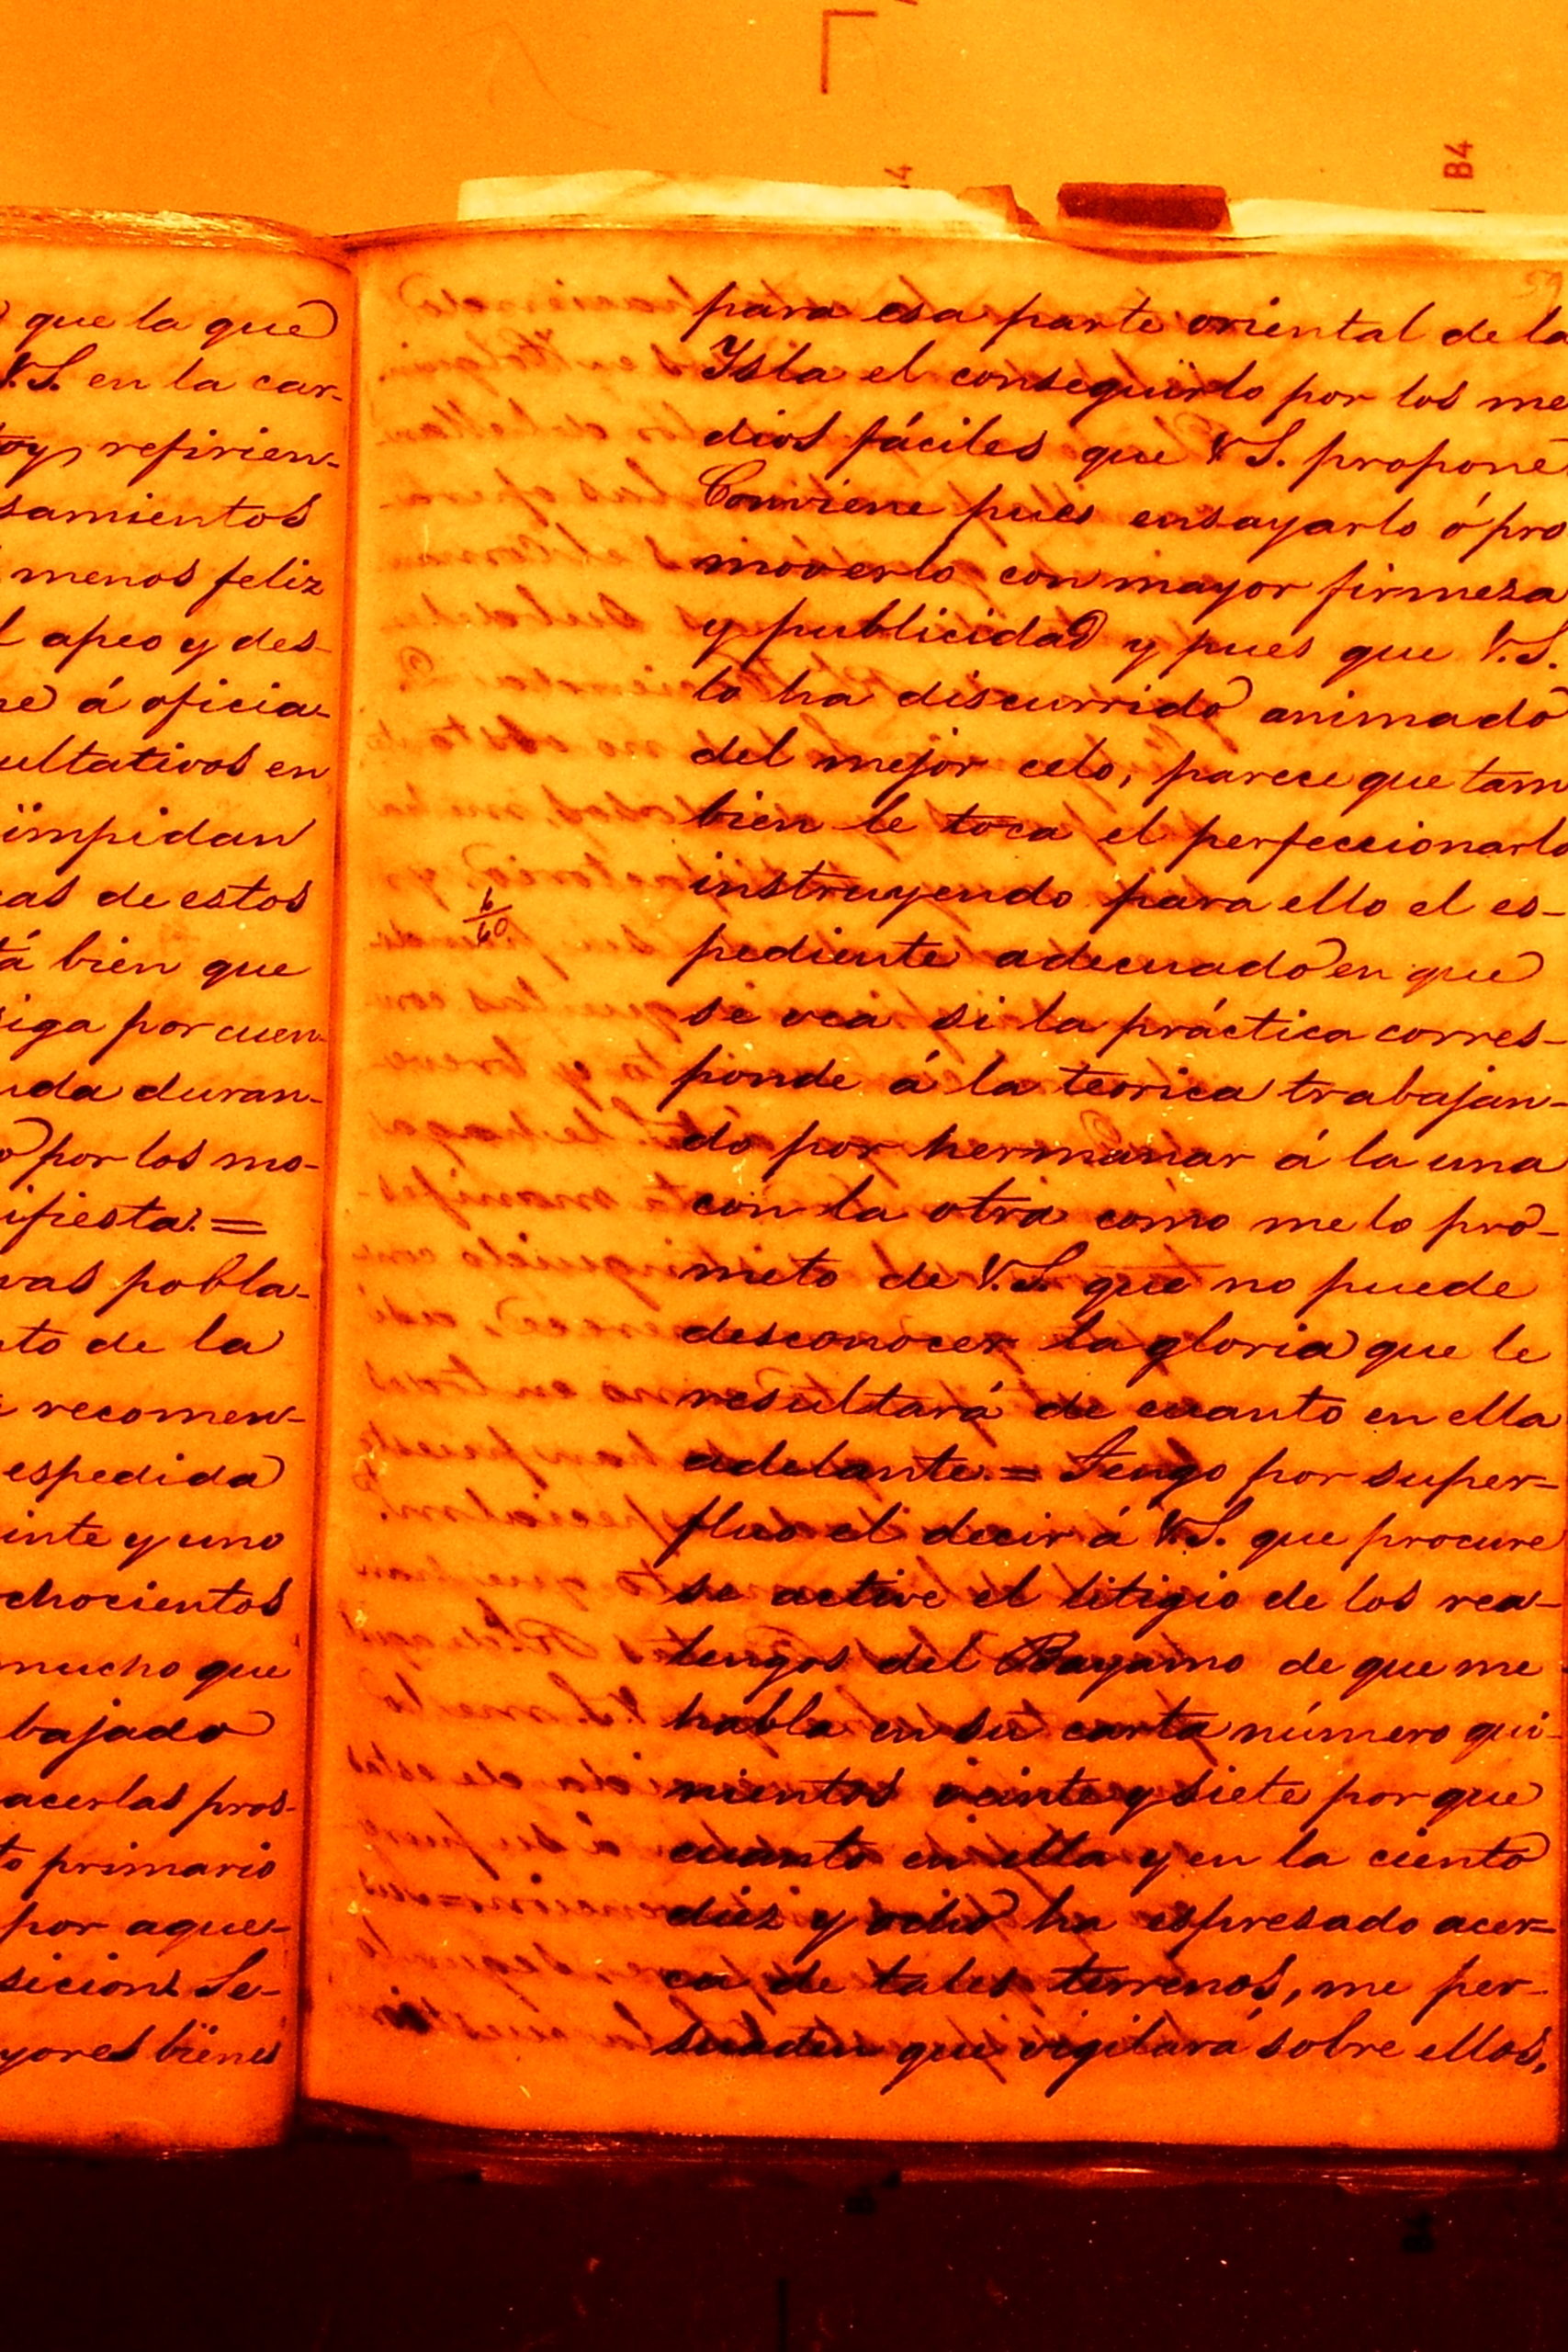 que la que
V.S. en la car-
refirien-
samientos
menos feliz
apeo y des-
á oficia-
ultativos en
ïmpidan
cas de estos
tá bien que
siga por cuen-
uda duran-
por los mo-
ifiesta. =
vas pobla-
nto de la
recomen-
espedida
inte y uno
chocientos
mucho que
bajado
acerlas pros-
to primario
por aque-
sicion Se-
yores bïenes
59
para esa parte oriental de la
Ysla el conseguirlo por los me
dios fáciles que V.S. propone
Conviene pues ensayarlo ó pro
moverlo con mayor firmesa
y publicidad y pues que V.S.
lo ha discurrido animado
del mejor celo, parece que tam
bien le toca el perfeccionarlo
instruyendo para ello el es-
pediente adecuado en que
se vea si la práctica corres-
ponde á la teorica trabajan-
do por hermanar á la una
con la otra como me lo pro-
meto de V.S. que no puede
desconocer la gloria que le
resultará de cuanto en ella
adelante. = Tengo por super-
fluo el decir á V.S. que procure
se active el litigio de los rea-
lengos del Bayamo de que me
habla en su carta número qui-
nientos veinte y siete por que
cuanto en ella y en la ciento
diez y ocho ha espresado acer-
ca de tales terrenos, me per-
suaden que vigilará sobre ellos,
6
60
B4